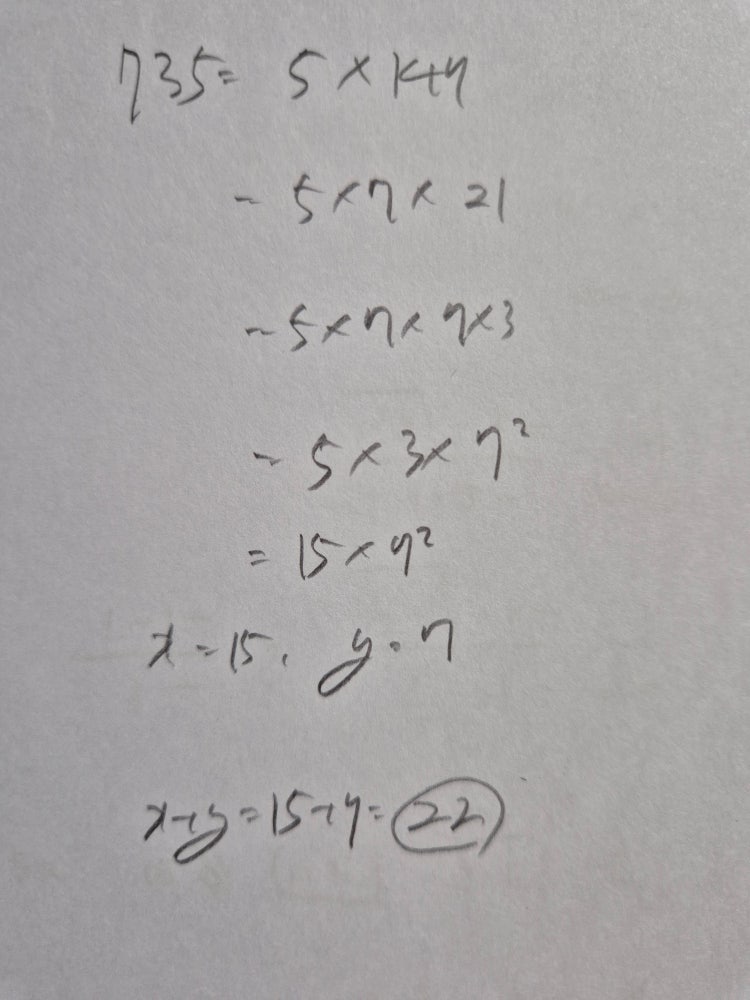 735 = 5 × 147
= 5 × 7 × 21
= 5 × 7 × 7 × 3
= 5 × 3 × 7²
= 15 × 7²
x = 15, y = 7
x+y = 15+7 = 22